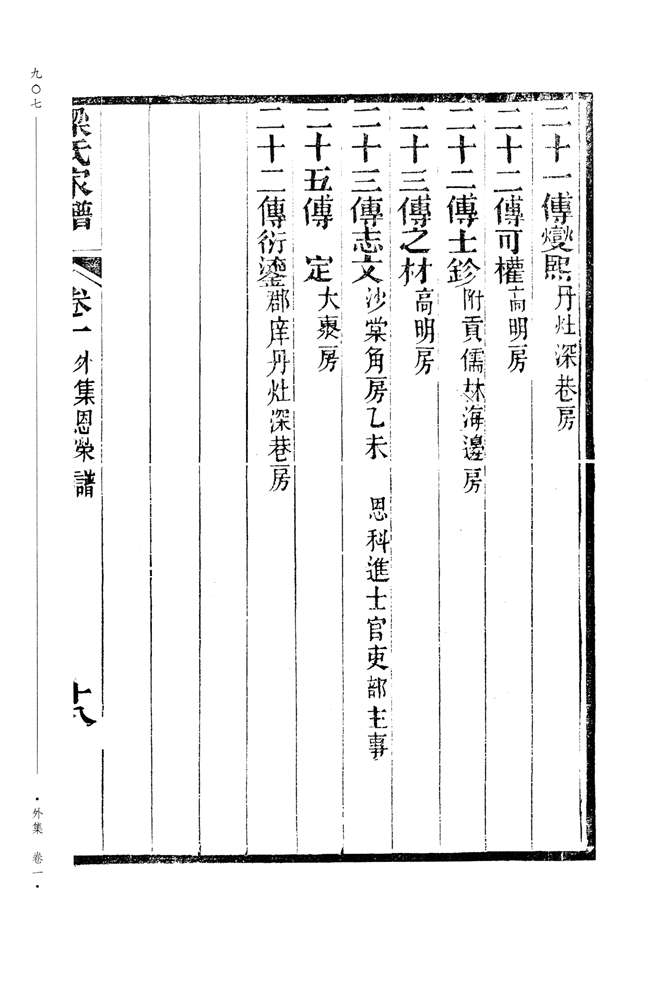 二十一傳燮熙丹灶深巷房
二十二傳可權高明房
二十二傳士鉁附貢儒林海邊房
二十三傳之材高明房
二十三傳志文沙棠角房乙未 恩科進士官吏部主事
二十五傳 定大㮚房
二十二傳衍鎏郡庠丹灶深巷房
梁氏家譜 卷一 外集恩榮譜 十八
九〇七
·外集 卷一·